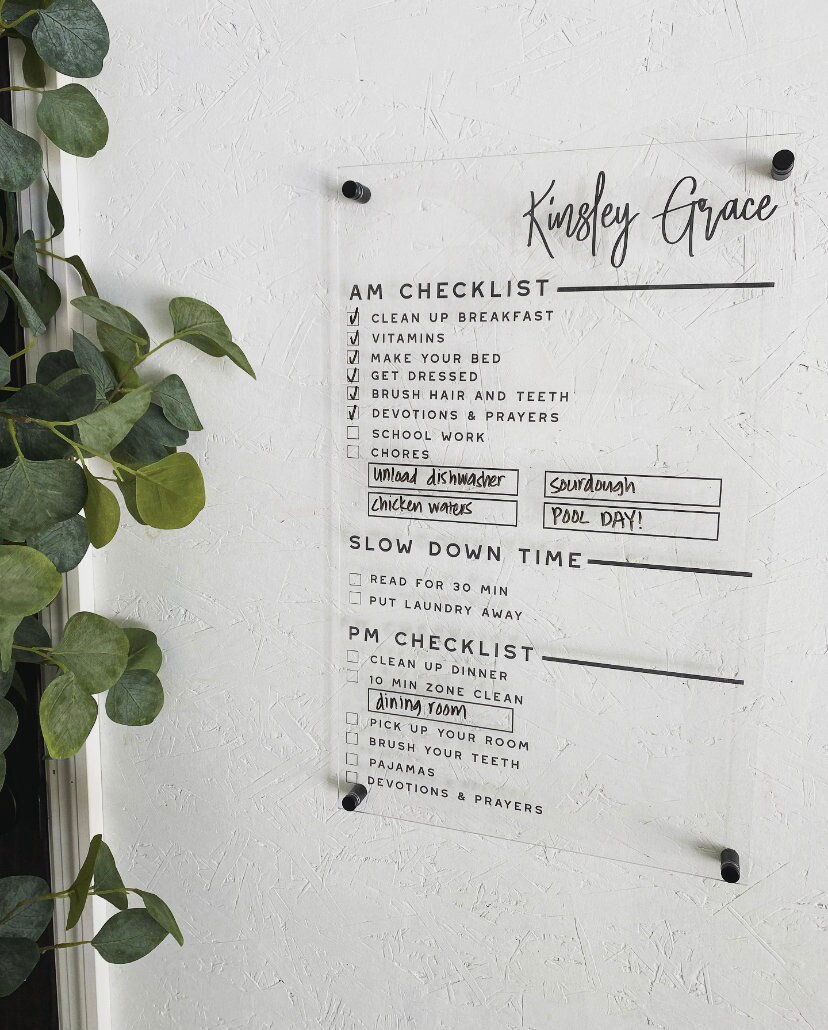 Kinsley Grace
AM CHECKLIST
CLEAN UP BREAKFAST
VITAMINS
MAKE YOUR BED
GET DRESSED
BRUSH HAIR AND TEETH
DEVOTIONS & PRAYERS
SCHOOL WORK
CHORES
unload dishwasher
sourdough
chicken waters
POOL DAY!
SLOW DOWN TIME
READ FOR 30 MIN
PUT LAUNDRY AWAY
PM CHECKLIST
CLEAN UP DINNER
10 MIN ZONE CLEAN
dining room
PICK UP YOUR ROOM
BRUSH YOUR TEETH
PAJAMAS
DEVOTIONS & PRAYERS